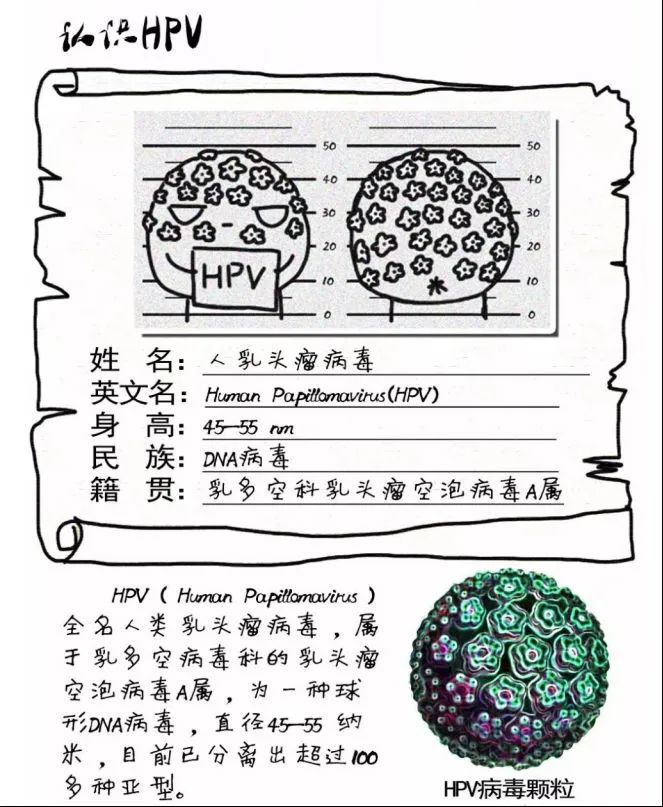 认识HPV
50
40
30
20
10
0
50
40
30
20
10
0
HPV
姓 名：人乳头瘤病毒
英文名：Human Papillomavirus(HPV)
身 高：45—55 nm
民 族：DNA病毒
籍 贯：乳多空科乳头瘤空泡病毒A属
HPV（Human Papillomavirus）
全名人类乳头瘤病毒，属
于乳多空病毒科的乳头瘤
空泡病毒A属，为一种球
形DNA病毒，直径45—55 纳
米，目前已分离出超过100
多种亚型。
HPV病毒颗粒